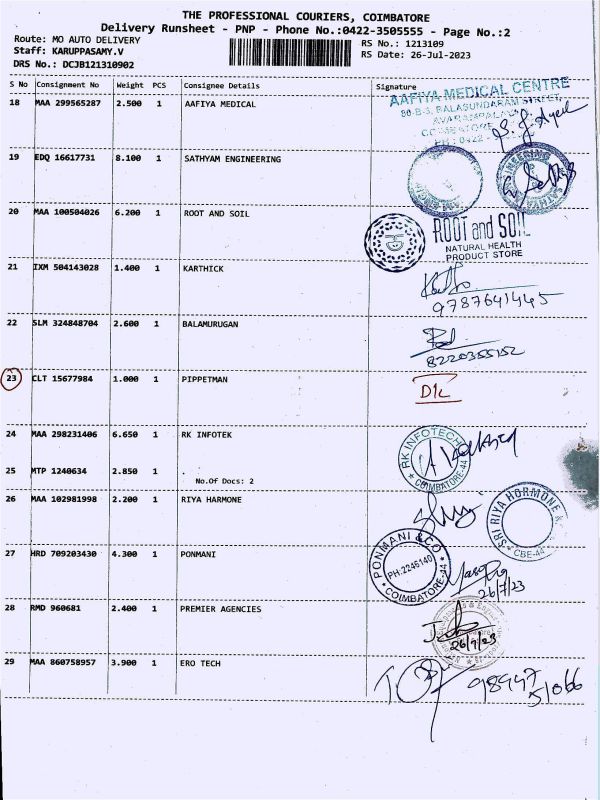 THE PROFESSIONAL COURIERS, COIMBATORE
Delivery Runsheet - PNP - Phone No.:0422-3505555 - Page No.:2
Route: MO AUTO DELIVERY
RS No.: 1213109
Staff: KARUPPASAMY.V
RS Date: 26-Jul-2023
DRS No.: DCJB121310902
S No Consignment No Weight PCS Consignee Details Signature
18 MAA 299565287 2.500 1 AAFIYA MEDICAL
AAFIYA MEDICAL CENTRE
80-B-3, BALASUNDARAM STREET,
19 EDQ 16617731 8.100 1 SATHYAM ENGINEERING
20 MAA 100504026 6.200 1 ROOT AND SOIL
ROOT and SOIL
NATURAL HEALTH
PRODUCT STORE
21 IXM 504143028 1.400 1 KARTHICK
9787641445
22 SLM 324848704 2.600 1 BALAMURUGAN
8220355152
23 CLT 15677984 1.000 1 PIPPETMAN
D/L
24 MAA 298231406 6.650 1 RK INFOTEK
RK INFOTECH
COIMBATORE-44
25 MTP 1240634 2.850 1 .
No.Of Docs: 2
26 MAA 102981998 2.200 1 RIYA HARMONE
SRI RIYA HORMONE
CBE-44
27 HRD 709203430 4.300 1 PONMANI
PONMANI & CO
PH:2246140
COIMBATORE-44
26/7/23
28 RMD 960681 2.400 1 PREMIER AGENCIES
26/7/23
29 MAA 860758957 3.900 1 ERO TECH
98947
51066